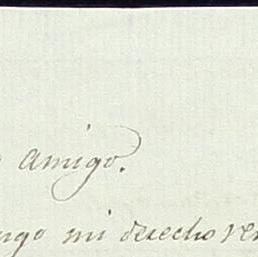 amigo.
mi derecho